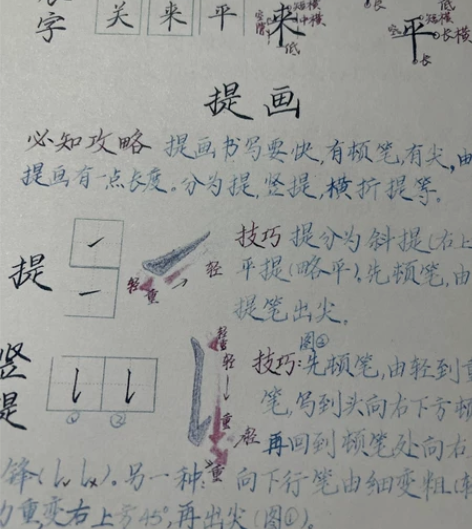 字 关 来 平 来 短横 中横 低 长 平 低 短横 长横 长
提画
必知攻略 提画书写要快,有顿笔,有尖,由
提画有一点长度。分为提,竖提,横折提等。
提
技巧 提分为斜提(右上
平提(略平)。先顿笔,由
提笔出尖。
轻 重 轻
竖提
① ②
图②
技巧:先顿笔,由轻到重
笔,写到头向右下方顿
再回到顿笔处向右
轻 重 轻 重
锋 另一种: 向下行笔由细变粗
力重变右上 45°,再出尖(图①)。